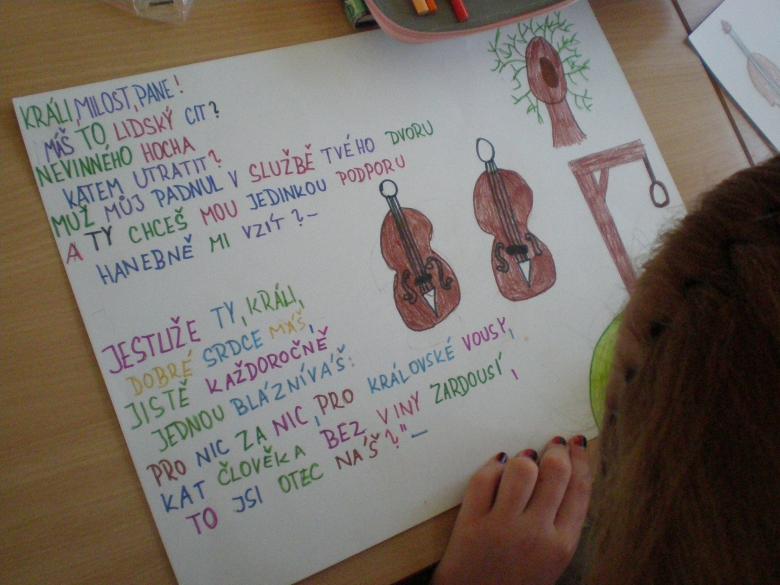 KRÁLI, MILOST, PANE!
MÁŠ TO LIDSKÝ CIT?
NEVINNÉHO HOCHA
KATEM UTRATIT?
MUŽ MŮJ PADNUL V SLUŽBĚ TVÉHO DVORU
A TY CHCEŠ MOU JEDINKOU PODPORU
HANEBNĚ MI VZÍT?-
JESTLIŽE TY, KRÁLI,
DOBRÉ SRDCE MÁŠ,
JISTĚ KAŽDOROČNĚ
JEDNOU BLÁZNÍVÁŠ:
PRO NIC ZA NIC, PRO KRÁLOVSKÉ VOUSY,
KAT ČLOVĚKA BEZ VINY ZARDOUSÍ,
TO JSI OTEC NÁŠ?"-